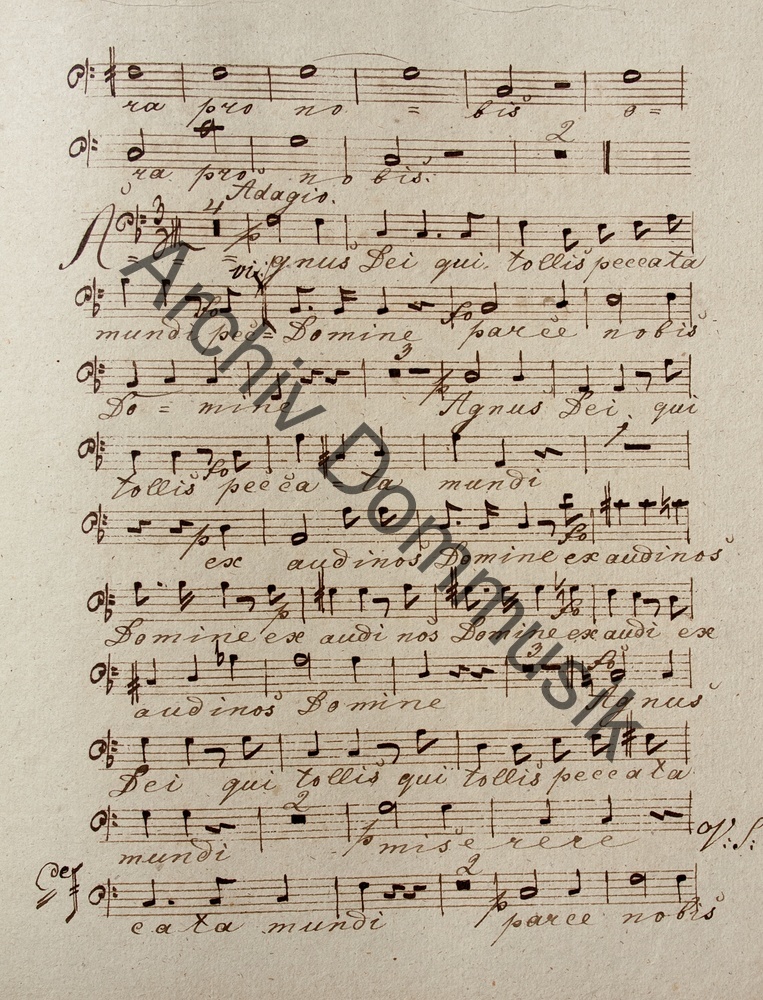 ra pro no = bis o=
2
ra pro no bis.
Adagio.
3 4 4
A = = gnus Dei qui tollis peccata
vi:
mundi pec= Domine parce nobis
fo fo
3
Do = mine Agnus Dei qui
tollis pecca = ta mundi
fo 1
p
ex audi nos Domine ex audi nos
fo
Domine ex audi nos Domine ex audi ex
p fo
audi nos Domine Agnus
3 fo
Dei qui tollis qui tollis peccata
2
mundi p miserere V: S:
2
cata mundi p parce nobis
Archiv Dommusik